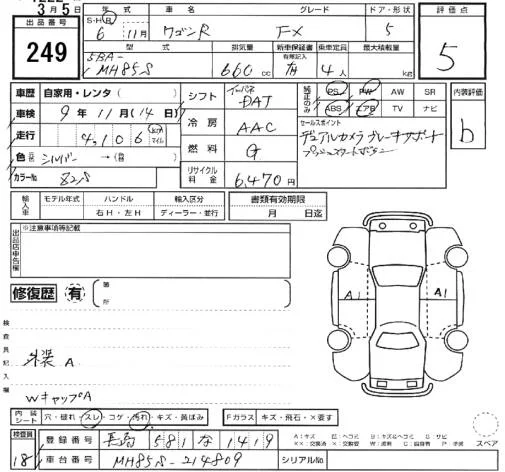 3月5日
出品番号
249
年式 車名 グレード ドア・形状
S・H・R
6年11月 ワゴンR FX 5
型式 排気量 新車保証書 乗車定員 最大積載量
有限記入
5BA-
MH85S 660cc 有 4人 kg
評価点
5
車歴 自家用・レンタ( )
車検 9年11月(14日)
走行 4,106 km マイル
色 元色 シルバー →(替色 )
カラーNo Z2S
シフト インパネ DAT
冷房 AAC
燃料 G
リサイクル料金 6,470円
純正のみ PS PW AW SR
ABS エアB TV ナビ
セールスポイント
デュアルカメラブレーキサポート
プッシュスタートボタン
内装評価
b
輸入車 モデル年式 ハンドル 輸入区分 書類有効期限
右H・左H ディーラー・並行 月 日迄
出品店申告欄
※注意事項等記載
修復歴 有 箇所
検査員記入欄
外装A
WキャップA
A1 A1
内装シート 穴・破れ・スレ・コゲ・汚れ・キズ・黄ばみ
Fガラス キズ・飛石・×要す
検査員
18
登録番号 長岡 581 な 1419
車台番号 MH85S-214809
シリアルNo.
スペア